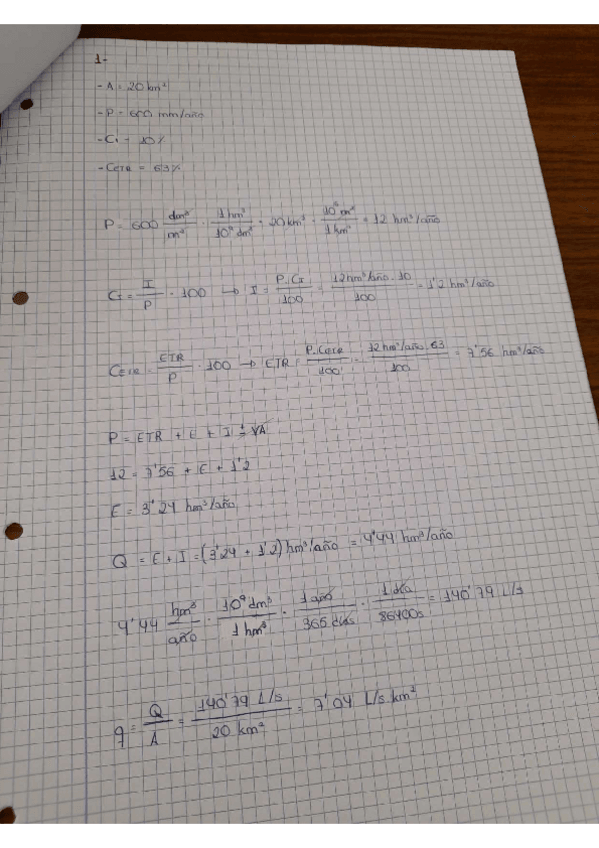 1-
- A = 20 km²
- P = 600 mm/año
- CI = 10%
- CETR = 63%
P = 600 dm³/m² · 1 hm³/10⁹ dm³ · 20 km² · 10⁶ m²/1 km² = 12 hm³/año
CI = I/P · 100 → I = P·CI/100 = 12 hm³/año · 10/100 = 1'2 hm³/año
CETR = ETR/P · 100 → ETR = P·CETR/100 = 12 hm³/año · 63/100 = 7'56 hm³/año
P = ETR + E + I ± VA
12 = 7'56 + E + 1'2
E = 3'24 hm³/año
Q = E + I = (3'24 + 1'2) hm³/año = 4'44 hm³/año
4'44 hm³/año · 10⁹ dm³/1 hm³ · 1 año/365 días · 1 día/86400s = 140'79 L/s
q = Q/A = 140'79 L/s/20 km² = 7'04 L/s km²